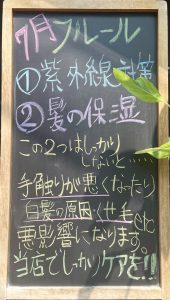 7月フルール
①紫外線対策
②髪の保湿
この2つはしっかり
しないと・・・・
手触りが悪くなったり
白髪の原因くせ毛etc
悪影響になります。
当店でしっかりケアを!!